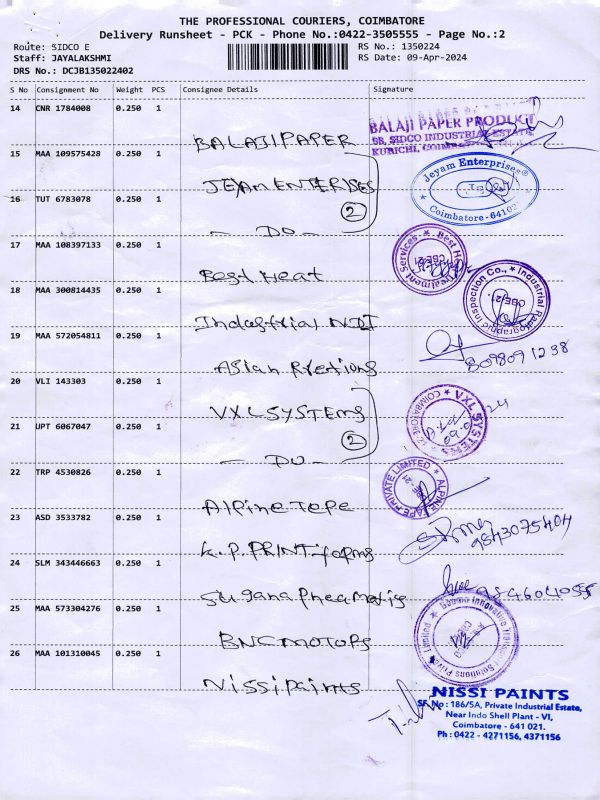 THE PROFESSIONAL COURIERS, COIMBATORE
Delivery Runsheet - PCK - Phone No.:0422-3505555 - Page No.:2
Route: SIDCO E RS No.: 1350224
Staff: JAYALAKSHMI RS Date: 09-Apr-2024
DRS No.: DCJB135022402
S No Consignment No Weight PCS Consignee Details Signature
14 CNR 1784008 0.250 1
BALAJI PAPER
BALAJI PAPER PRODUCT
SB, SIDCO INDUSTRIAL ESTATE
KURICHI,
15 MAA 109575428 0.250 1
JEYAM ENTERISES
Jeyam Enterprises®
Coimbatore-
16 TUT 6783078 0.250 1
2
- DO -
17 MAA 108397133 0.250 1
Best Heat
18 MAA 300814435 0.250 1
Industrial NDT
Industrial Radiographic Inspection Co.,
CBE-21.
19 MAA 572054811 0.250 1
Asian
8098091238
20 VLI 143303 0.250 1
VXL SYSTEMS
VXL SYSTEMS
21 UPT 6067047 0.250 1
2
- DO -
22 TRP 4530826 0.250 1
Alpine Tape
ALPINE TAPE PRIVATE LIMITED
23 ASD 3533782 0.250 1
K.P. PRINT forms
9843075404
24 SLM 343446663 0.250 1
Sugana
25 MAA 573304276 0.250 1
BNC MOTORS
Solutions Private Limited
26 MAA 101310045 0.250 1
Nissi paints
NISSI PAINTS
SF No : 186/5A, Private Industrial Estate,
Near Indo Shell Plant - VI,
Coimbatore - 641 021.
Ph : 0422 - 4271156, 4371156